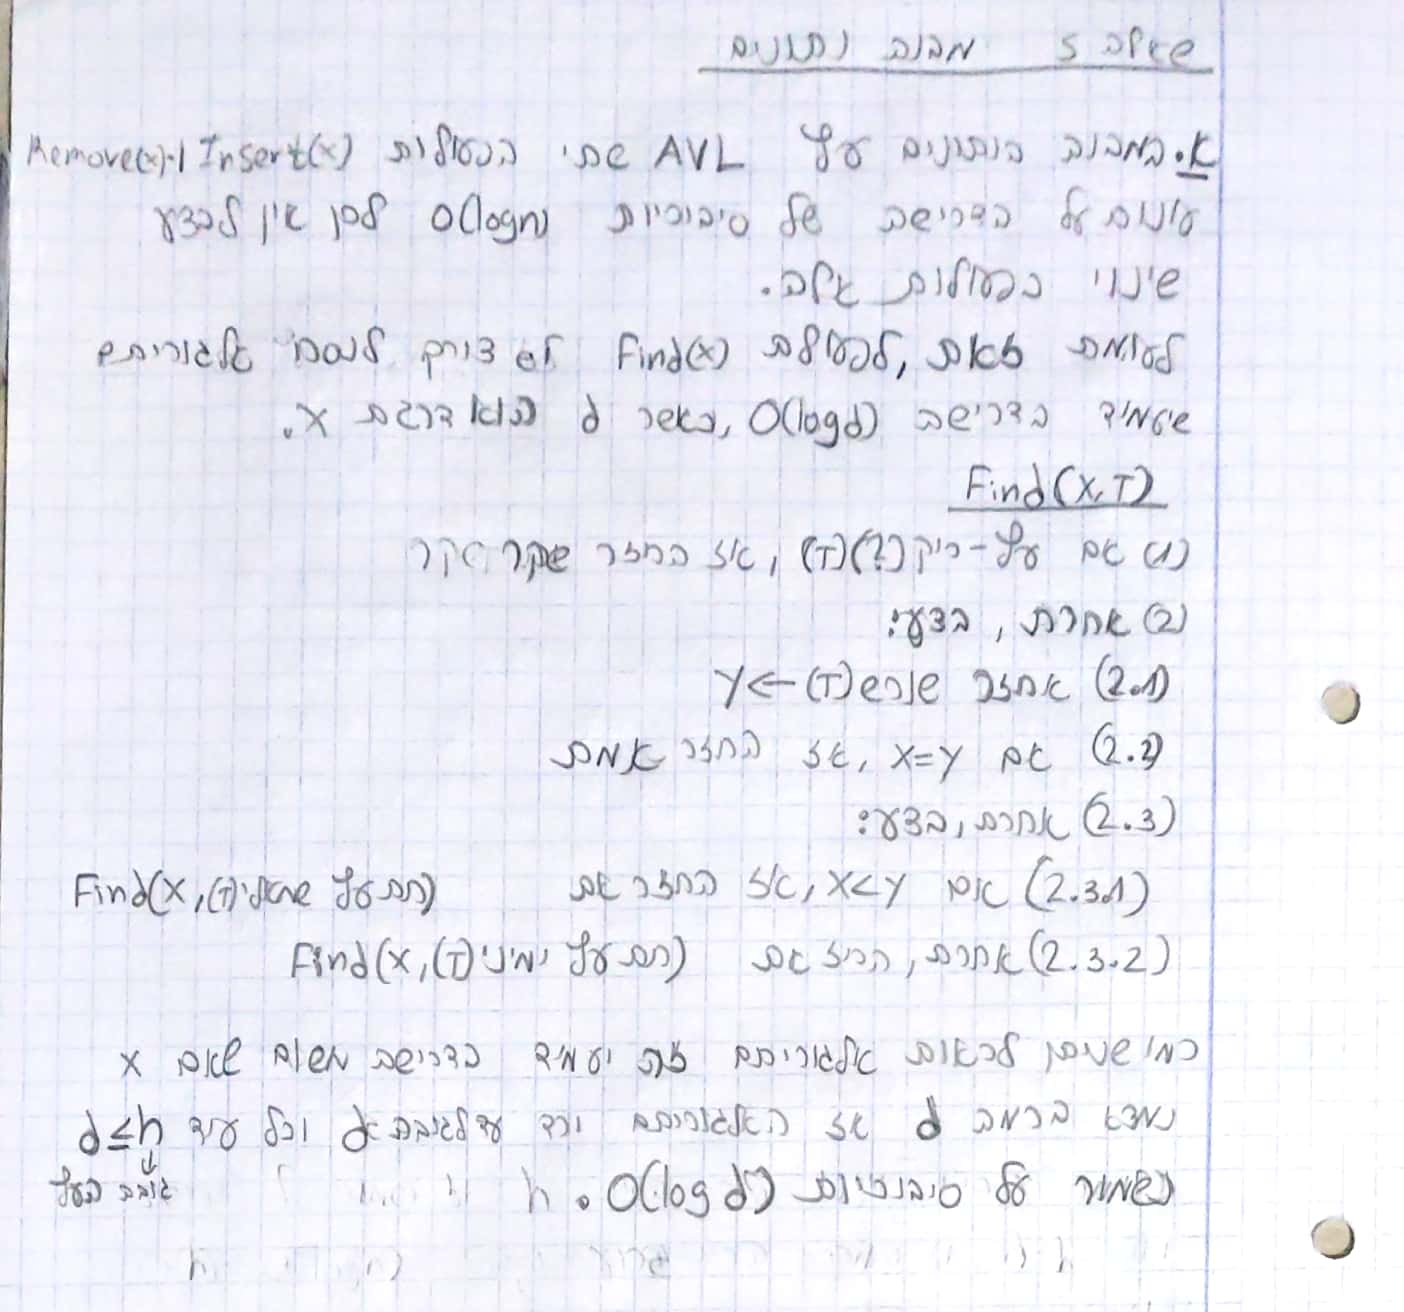 שאלה 5 מבנה נתונים
א. במבנה הנתונים עץ AVL שתי הפעולות Insert(x) ו-Remove(x)
עונות על הדרישה של סיבוכיות O(logn) לכן אין לבצע
שינוי בפעולות אלה.
לעומת זאת, לפעולת Find(x) צורך לנסח אלגוריתם
שיעמיד בדרישה O(logd), כאשר d הוא דרגת x.
Find(x,T)
(1) אם עץ-ריק(?)(T), אז החזר שקר
(2) אחרת, בצע:
(2.1) אחזר שורש(T)→y
(2.2) אם x=y, אז החזר אמת
(2.3) אחרת, בצע:
(2.3.1) אם x<y, אז החזר את Find(x, (תת עץ שמאלי(T))
(2.3.2) אחרת, החזר את Find(x, (תת עץ ימיני(T))
כמו שניתן לראות אלגוריתם זה יעמיד בדרישה משום שאם x
נמצא ברמה d אז האלגוריתם ירד עד לגובה d וכל עוד d≤h
נשמור על סיבוכיות O(log d).
גובה העץ